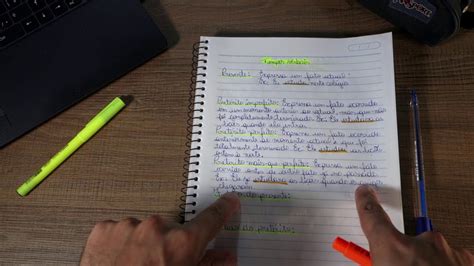 Tempos
Presente: Expressa um fato atual.
Ex: Eu estudo neste colégio
Pretérito Imperfeito: Expressa um fato ocorrido
em um momento anterior ao atual, mas que não
foi completamente terminado. Ex: Ele estudava as
lições quando ele
Pretérito perfeito: Expressa um fato ocorrido
anteriormente ao momento atual e que foi
totalmente terminado. Ex: Ele estudou as lições
ontem à noite.
Pretérito mais-que-perfeito: Expressa um fato
ocorrido antes de outro fato já
Ex: Ele já estudara as lições quando os
chegaram
do presente:
do pretérito: